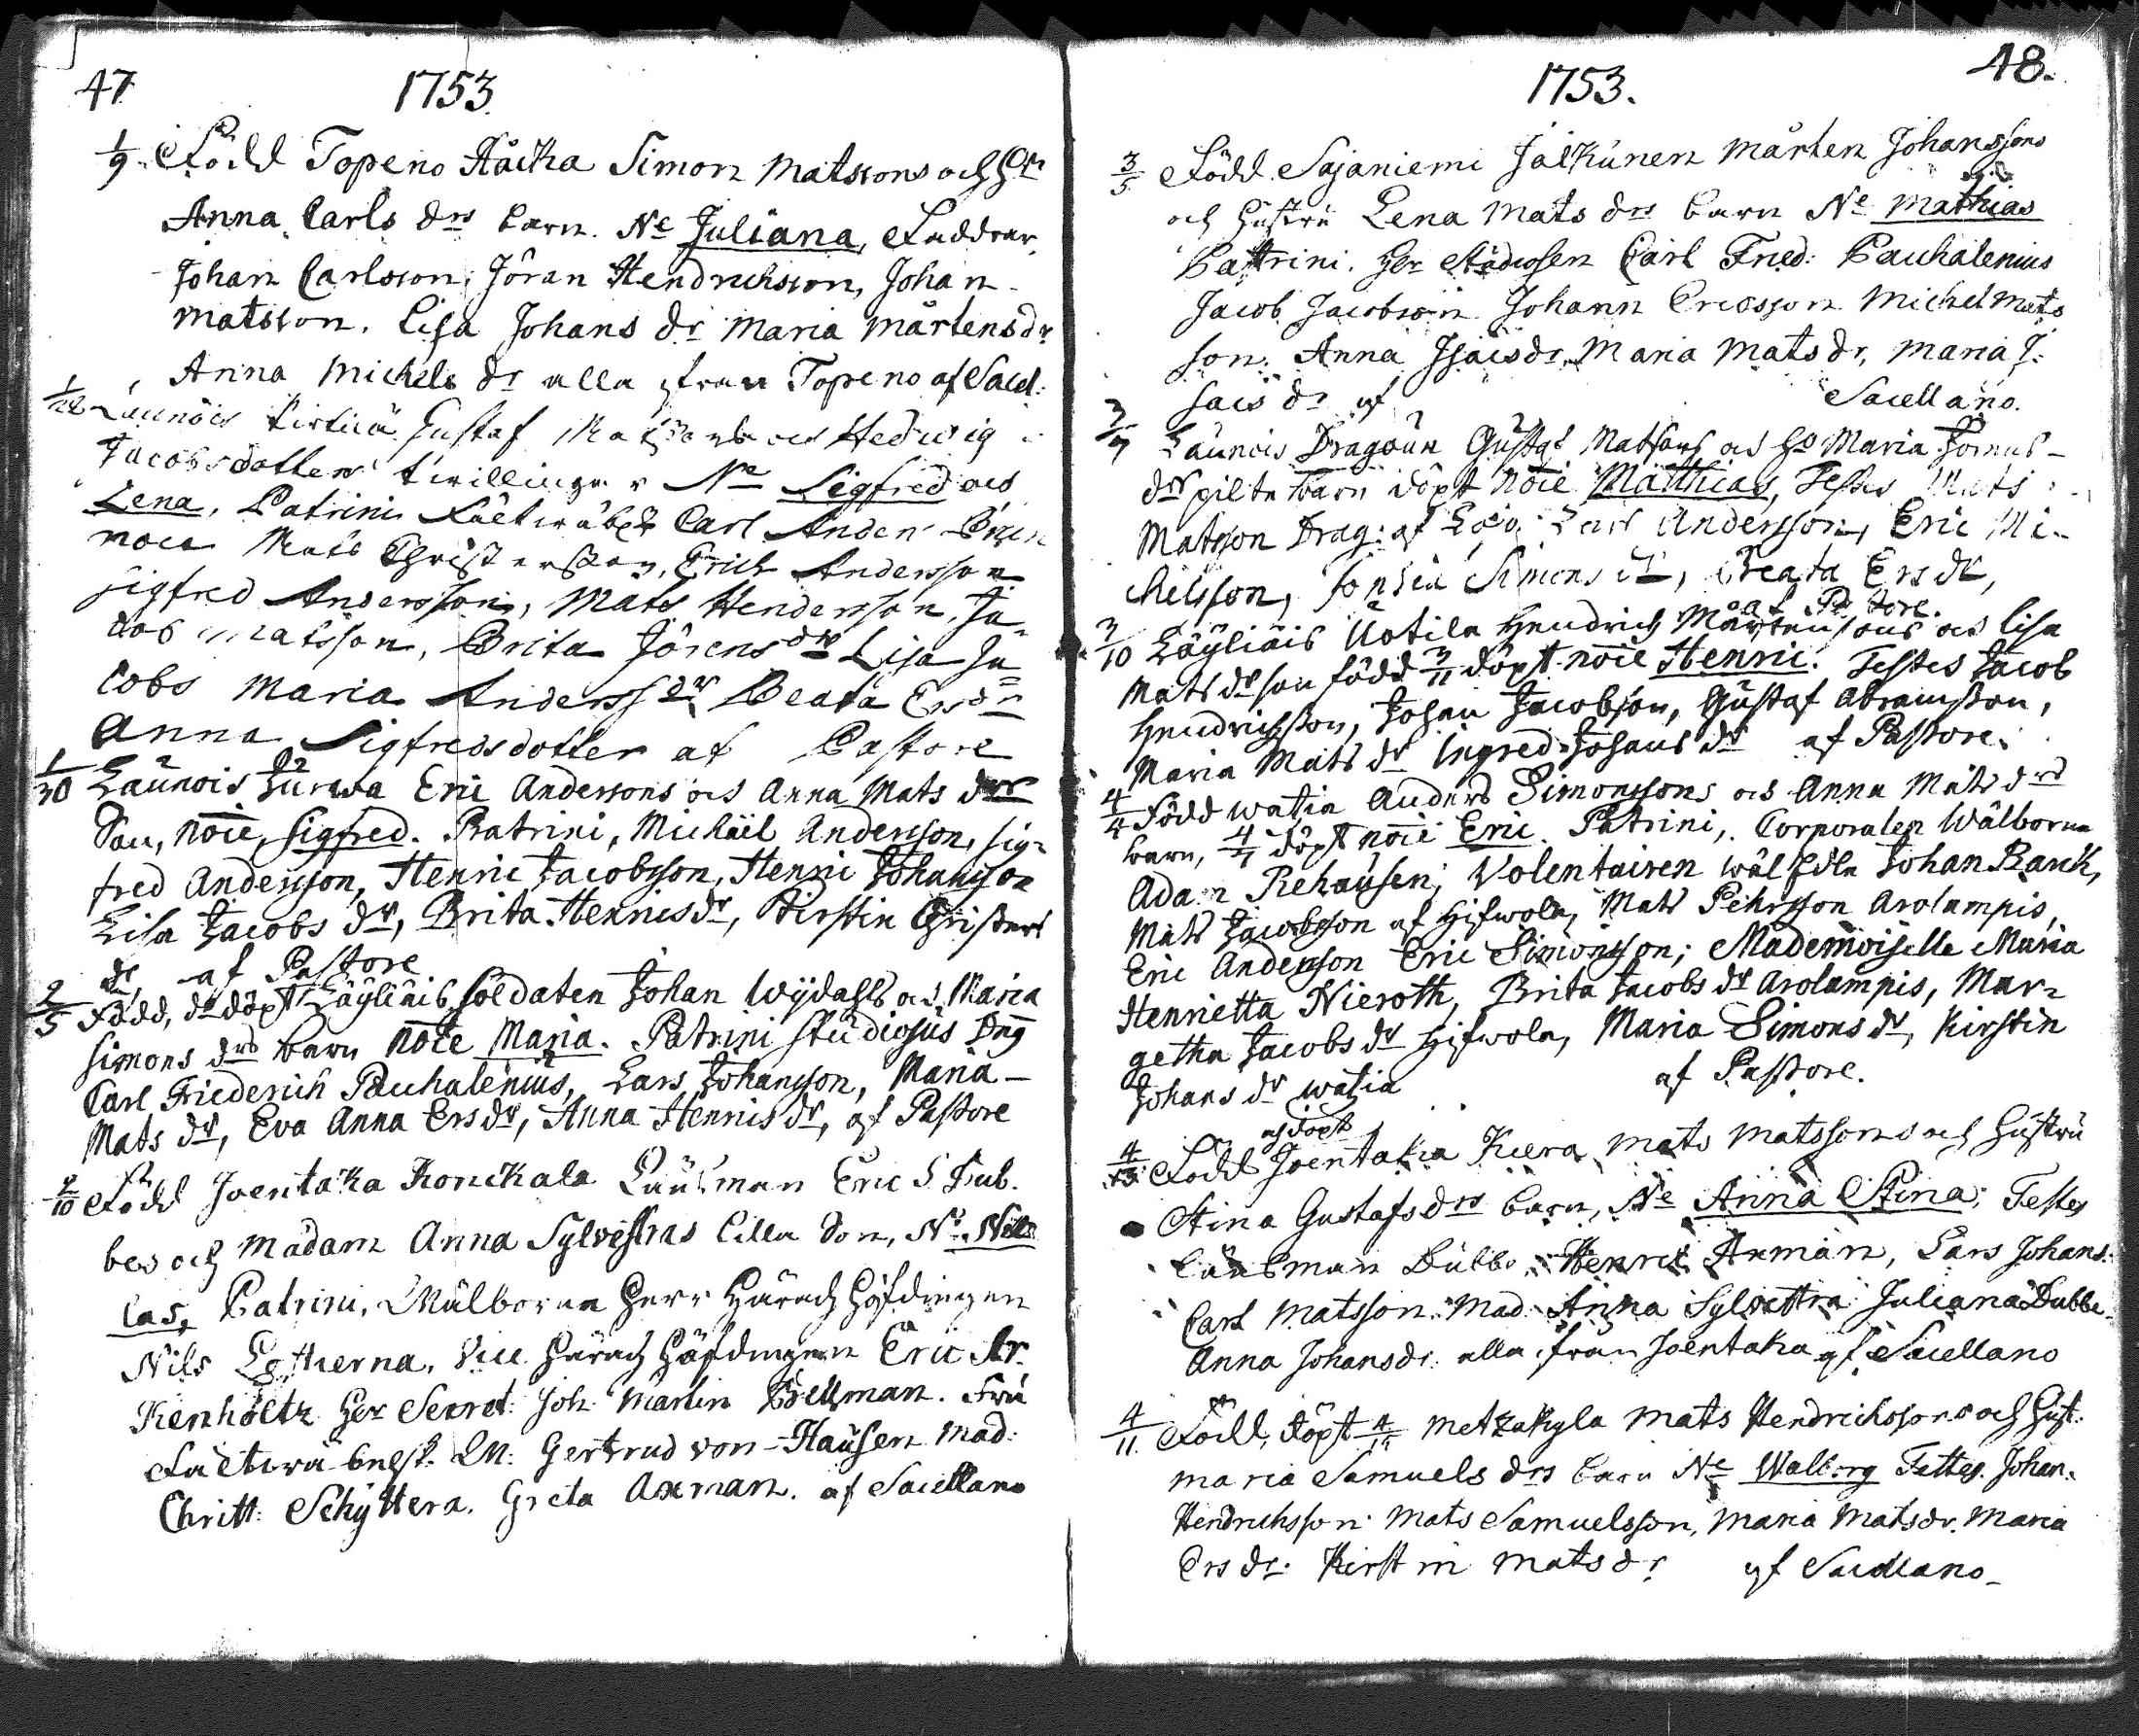 47
1753
1/9 Född Topeno Håcka Simon Matssons och h:u
Anna Carls drs barn. N:e Juliana, Faddrar
Johan Carlsson, Jöran Hendrichsson, Johan
Matsson. Lisa Johans dr Maria Mårtensdr
Anna Michels dr alla ifrån Topeno af Sacel:
Launois Gustaf och Hedwig
Jacobsdotters twillingar N:e Sigfred och
Lena, Patrini Carl Ander
Mats Christersson, Erich Andersson
Sigfred Andersson, Mats Hendersson, Ja-
cob Matsson, Brita Jörensdr Lisa Ja=
cobs Maria Anderssdr Beata Ersdr
Anna Sigfredsdotter af Pastore
1/30 Launois Eric Anderssons och Anna Mats drs
Son, noïe, Sigfred. Patrini, Michäel Andersson, Sig-
fred Andersson, Henric Jacobsson, Henric Johansson
Lisa Jacobs dr, Brita Henricsdr, Kirstin Christers
dr, af Pastore
2/5 Född, dr döpt Läyliäis Soldaten Johan Wijdahls och Maria
Simons drs barn noïe Maria. Patrini Studiosus Dng
Carl Friederich Pauhalenius, Lars Johansson, Maria
Mats dr, Eva Anna Ersdr, Anna Henrisdr, af Pastore
2/10 Född Joentaka Konikala Länsman Eric S Dub.
bes och Madam Anna Sylvestras lilla Son, N:e Nico
las, Patrini, Wälborna Herr Härads Höfdingen
Nils Lotherna, Vice Härads Höfdingen Eric Ar.
Kenholtz Her Secret: Joh: Martin Bellman. Fru
Gertrud von Hausen Mad:
Christ: Schyttera. Greta Axman. af Sacellano

48.
1753.
3/5 Född Sajaniemi Jalkunen Mårten Johanssons
och Hustru Lena Mats drs barn N:e Mathias
Patrini. Her Studiosen Carl Fred: Pauhalenius
Jacob Jacobsson Johann Ericsson Michel Mats
son. Anna Isacsdr, Maria Matsdr, Maria I-
sacs dr af Sacellano.
3/7 Launois Dragoun Gustaf Matsons och H:u Maria Tomas-
drs pilte barn döpt noïe Matthias, Testes Mats
Matsson Drag: af Lojo Lars Andersson, Eric Mi-
chelsson, Sophia Simons dr, Beata Ers dr,
af Pastore.
3/10 Läyliäis Uotila Hendrich Mårtenssons och Lisa
Mats drs son född 3/11 döpt noïe Henric. Testes Jacob
Hendrichsson, Johan Jacobsson, Gustaf Abramsson,
Maria Mats dr Ingred Johans dr af Pastore.
4/4 Född Watia Anders Simonssons och Anna Mats drs
barn, 4/7 döpt noïe Eric. Patrini, Corporalen Wälborna
Adam Rehausen, Volentairen wäl Edla Johan Ranck,
Mats Jacobsson af Hifwola, Mats Pehrsson Arolampis,
Eric Andersson Eric Simonsson; Mademoiselle Maria
Henrietta Nieroth, Brita Jacobs dr Arolampis, Mar-
getha Jacobs dr Hifwola, Maria Simons dr, Kirstin
Johans dr Watia af Pastore.
och döpt
4/13 Född Joentaka Kiera Mats Matssons och Hustru
Stina Gustafsdrs barn, N:e Anna Stina; Testes
Länsman Dubbe Henric Axman, Lars Johans.
Carl Matsson. Mad: Anna Sylvestra Juliana Dubbe.
Anna Johansdr. alla ifrån Joentaka af Sacellano
4/11. Född, döpt Metzakyla Mats Hendrichssons och Hust:
Maria Samuels drs barn N:e Walborg Testes. Johan.
Hendrichsson Mats Samuelsson, Maria Matsdr. Maria
Ers dr. Kirstin Mats dr af Sacellano